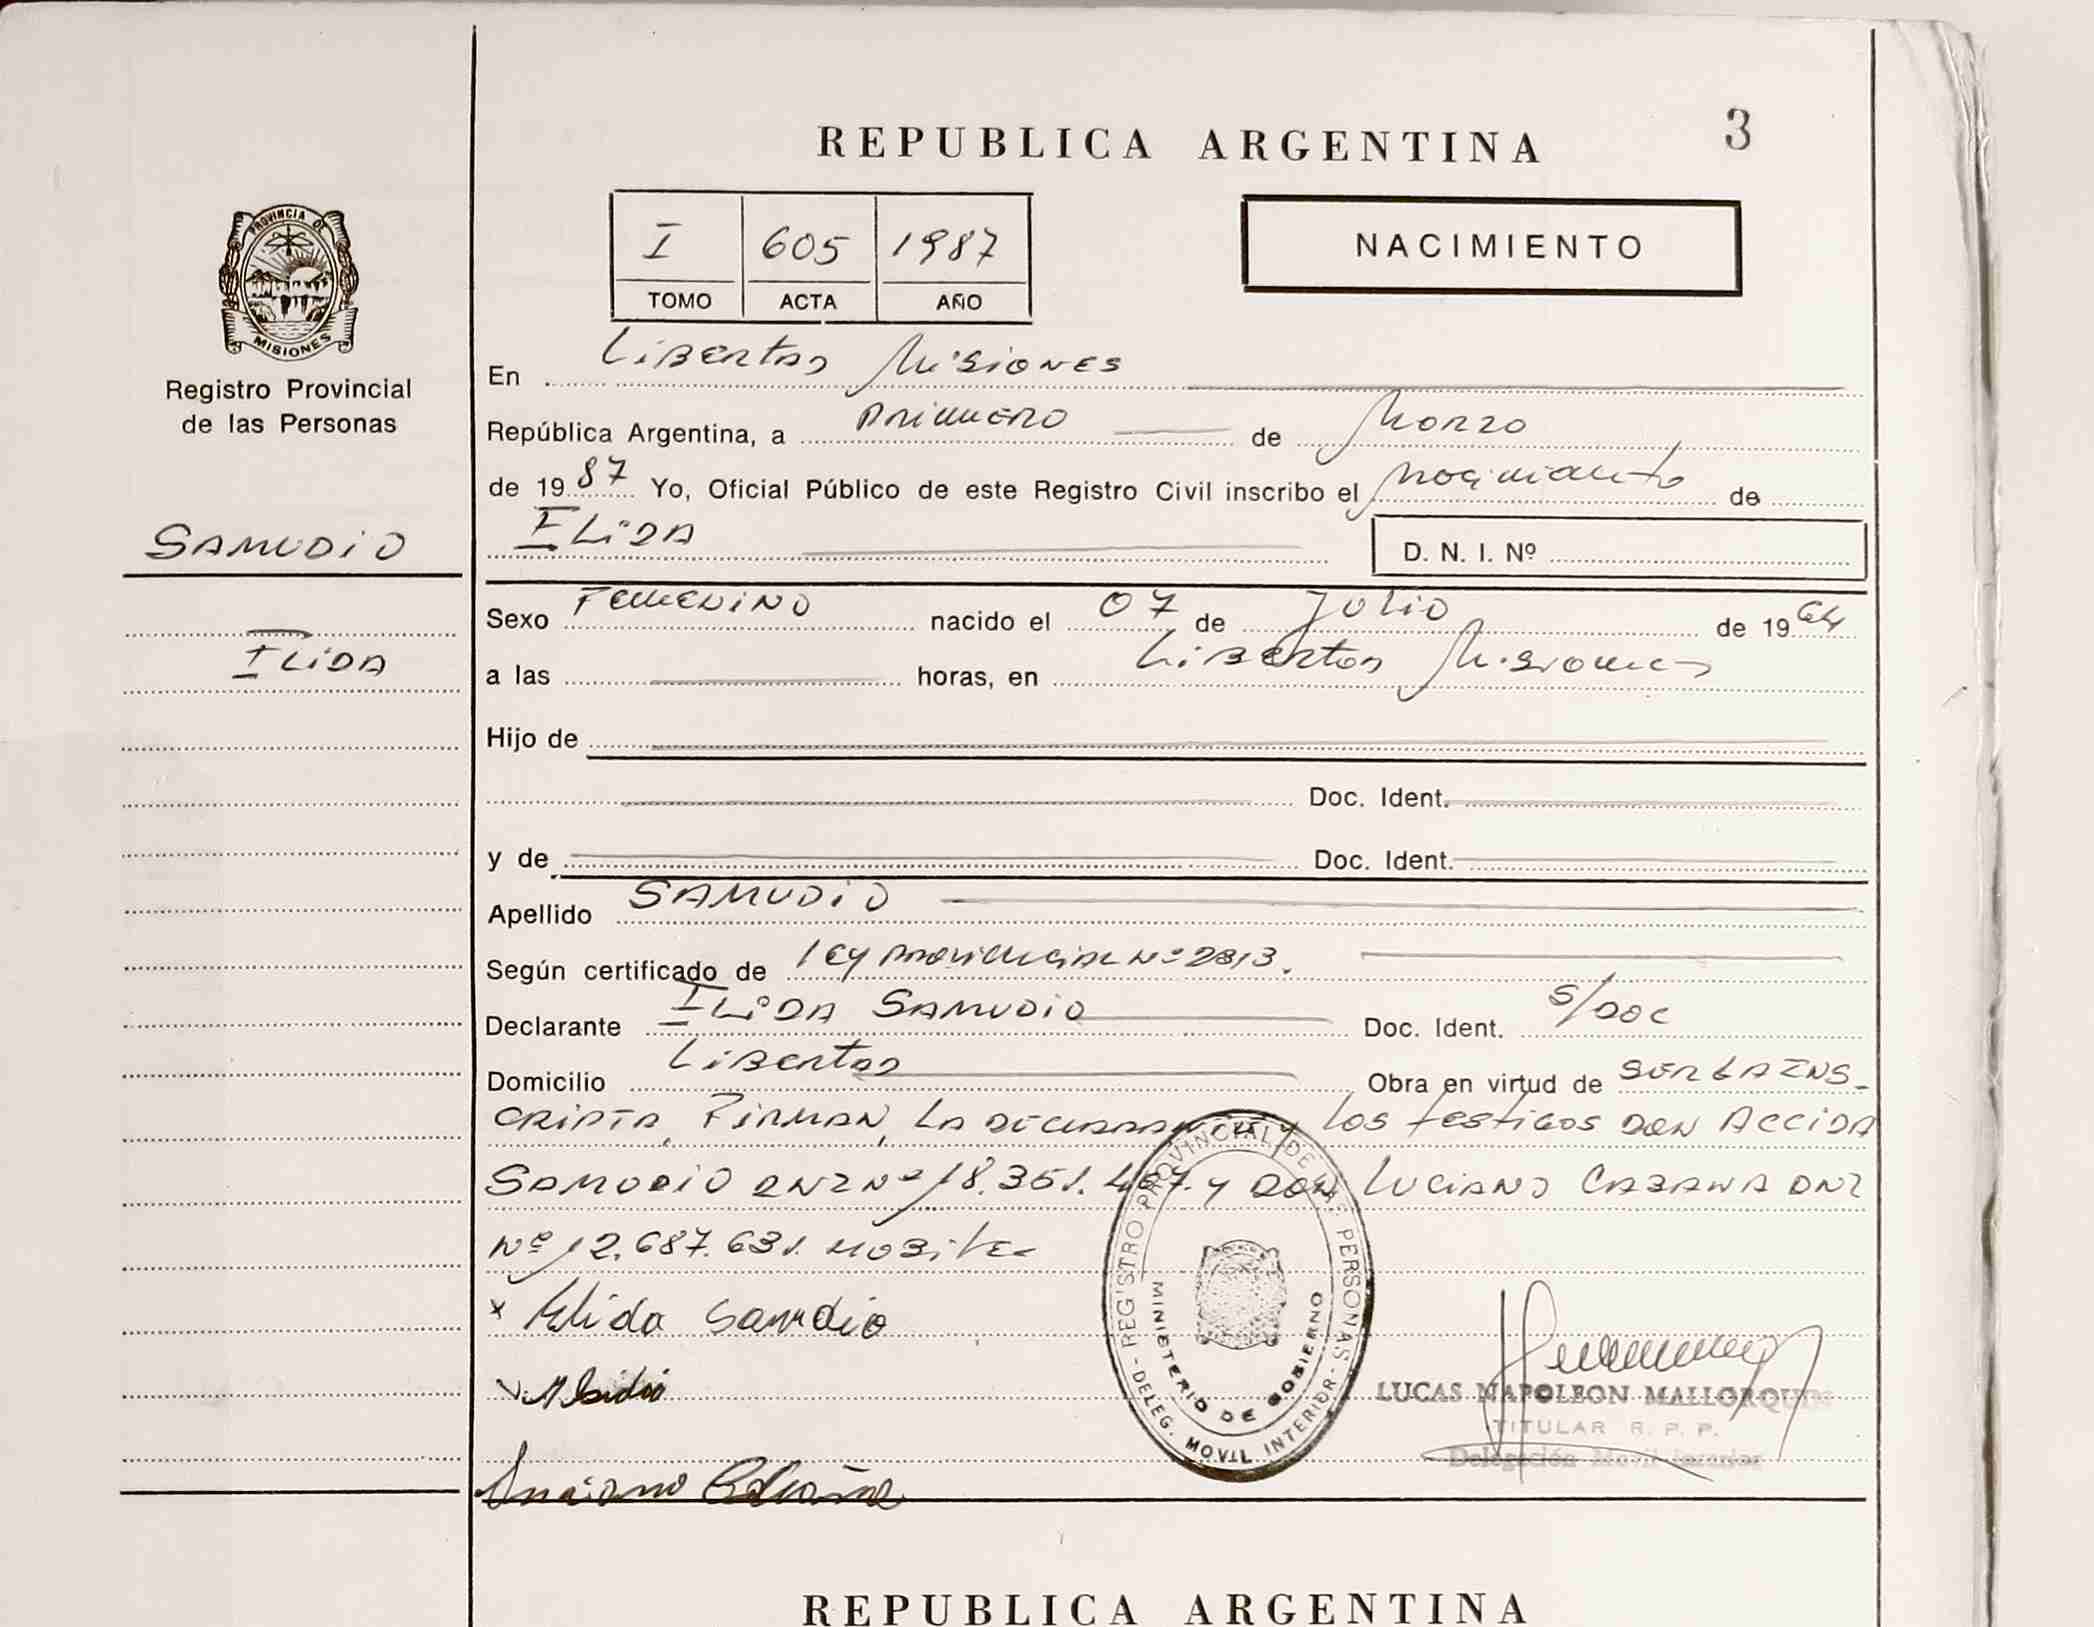 REPUBLICA ARGENTINA
3
PROVINCIA DE
MISIONES
Registro Provincial
de las Personas
I 605 1987
TOMO ACTA AÑO
NACIMIENTO
En Libertad Misiones
República Argentina, a primero de Marzo
de 1987 Yo, Oficial Público de este Registro Civil inscribo el nacimiento de
SAMUDIO
ILIDA
D. N. I. Nº
Sexo Femenino nacido el 07 de Julio de 1964
ILIDA
a las horas, en Libertad Misiones
Hijo de
Doc. Ident.
y de Doc. Ident.
Apellido SAMUDIO
Según certificado de ley provincial Nº 2813.
Declarante ILIDA SAMUDIO Doc. Ident. S/DOC
Domicilio Libertad Obra en virtud de SER LA INS-
CRIPTA, FIRMAN, LA DECLARANTE y LOS testigos DON ACCIDA
SAMUDIO DNI Nº 18.351.467. y DON LUCIANO CABAÑA DNI
Nº 12.687.631.
x Elida Samudio
Luciano Cabaña
REGISTRO PROVINCIAL DE LAS PERSONAS
MINISTERIO DE GOBIERNO
-DELEG. MOVIL INTERIOR-
LUCAS NAPOLEON MALLORQUIN
TITULAR R. P. P.
Delegación Movil Interior
REPUBLICA ARGENTINA